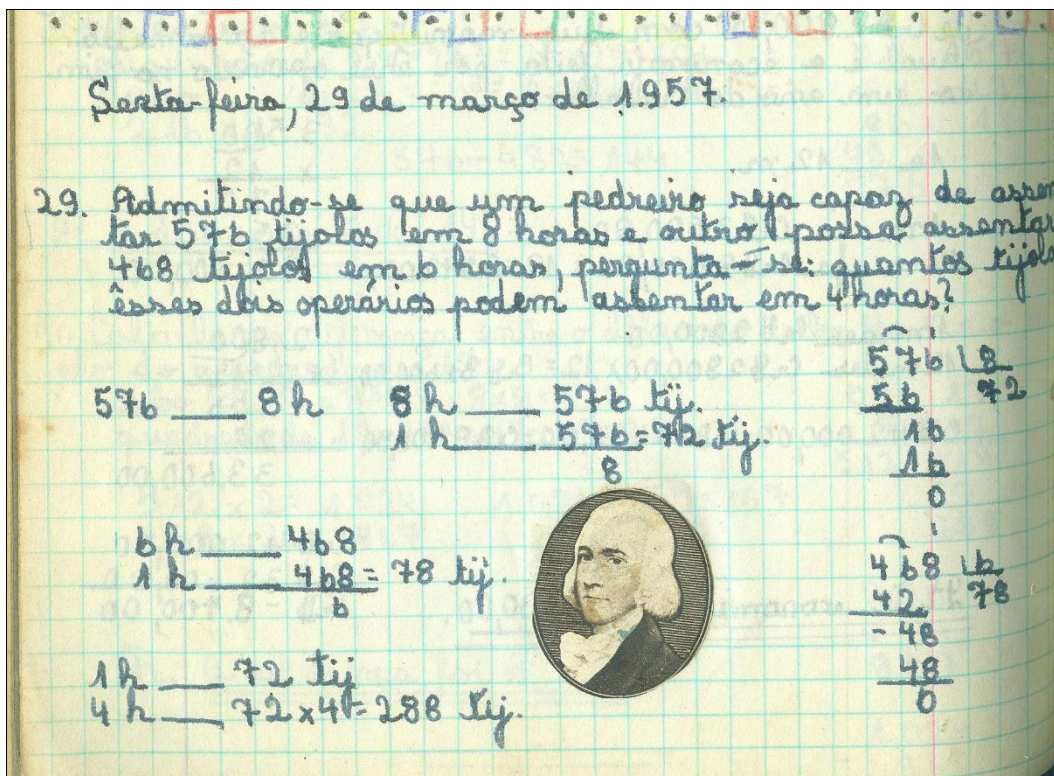 Sexta-feira, 29 de março de 1.957.
29. Admitindo-se que um pedreiro seja capaz de assen
tar 576 tijolos em 8 horas e outro possa assentar
468 tijolos em 6 horas, pergunta-se: quantos tijolo
êsses dois operários podem assentar em 4 horas?
576 8
56 72
16
16
0
576 ___ 8 h 8 h ___ 576 tij.
1 h ___ 576 = 72 tij.
8
6 h ___ 468
1 h ___ 468 = 78 tij.
6
468 6
42 78
- 48
48
0
1 h ___ 72 tij
4 h ___ 72 x 4 = 288 tij.